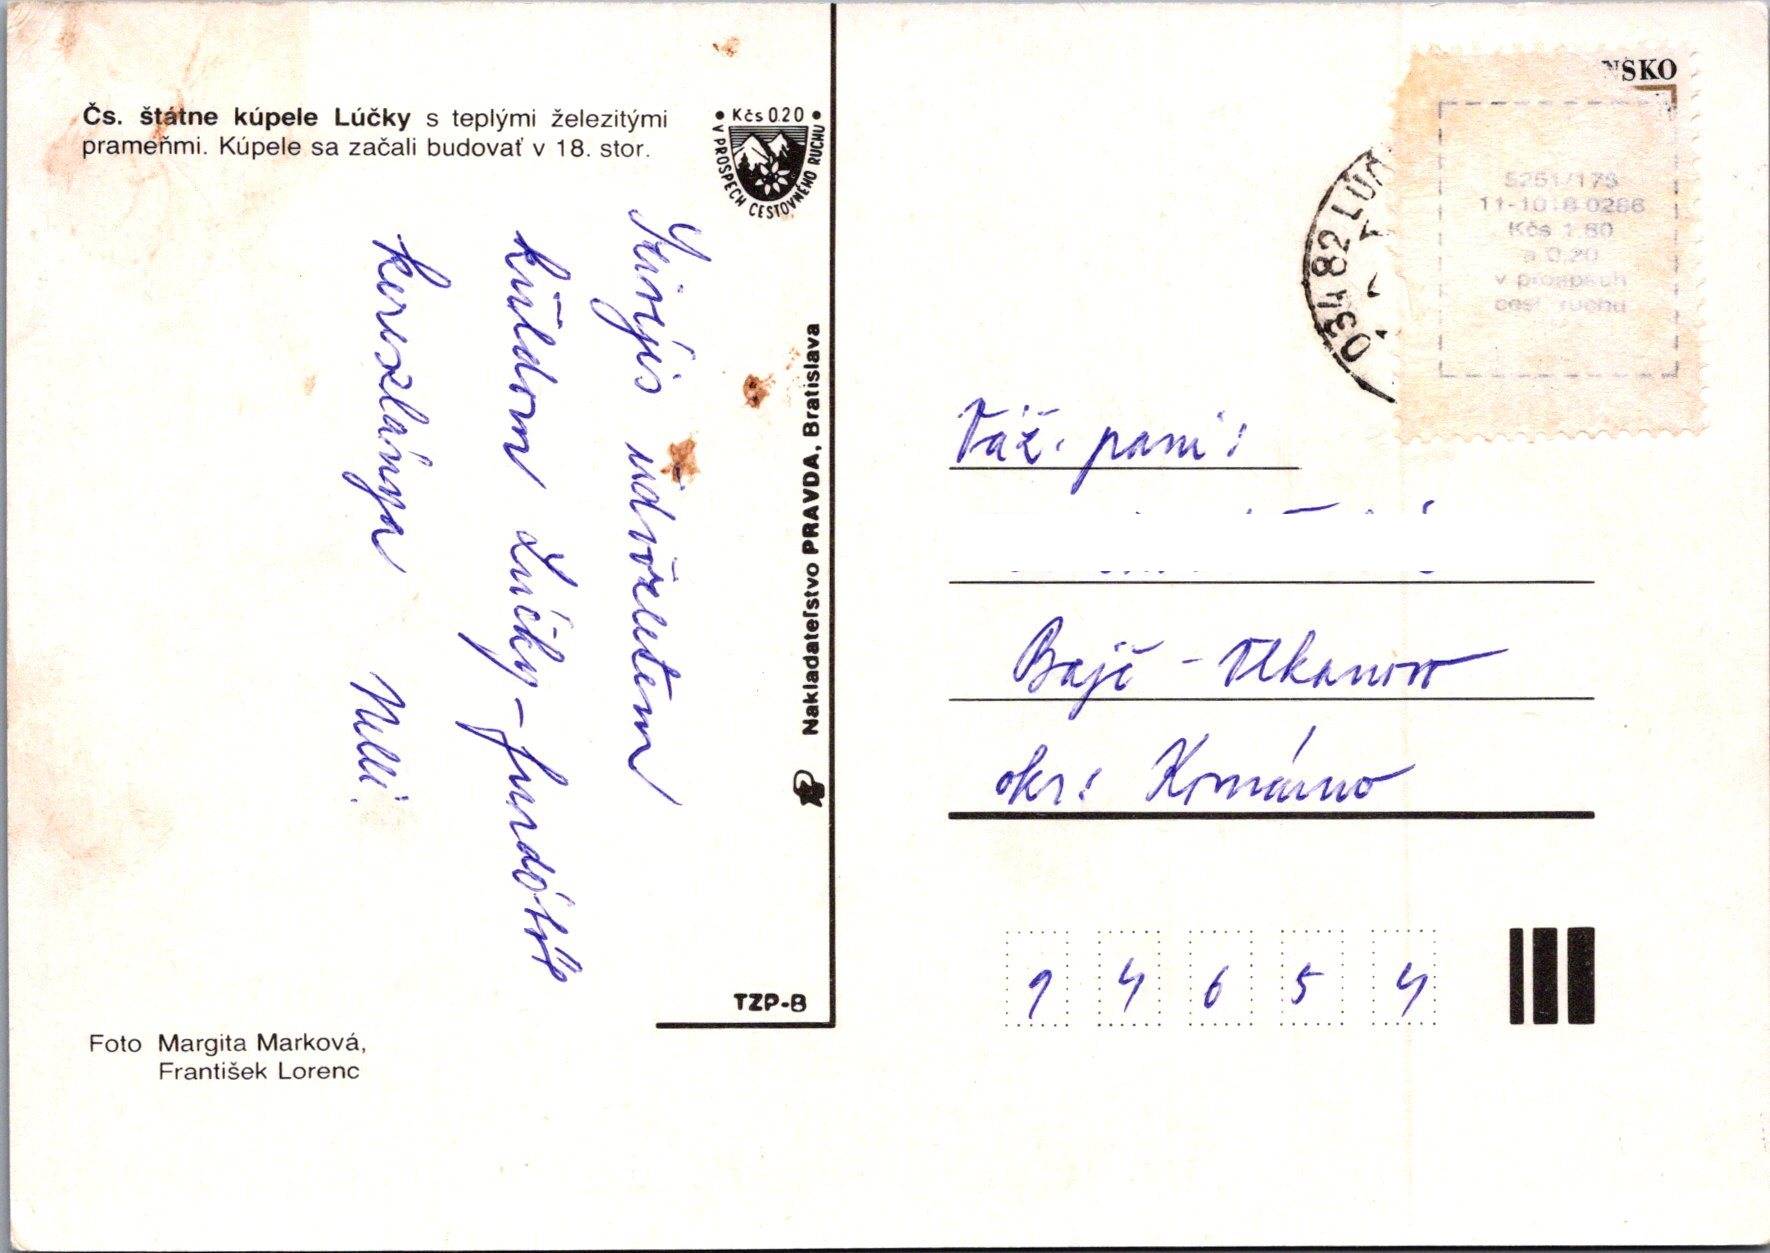 Čs. štátne kúpele Lúčky s teplými železitými
prameňmi. Kúpele sa začali budovať v 18. stor.
Kčs 0.20
V PROSPECH CESTOVNÉHO RUCHU
Szívjes üdvözletem
küldöm Lúčky-fürdöböl
keresztánya Nelli.
Nakladateľstvo PRAVDA, Bratislava
TZP-B
Foto Margita Marková,
František Lorenc
NSKO
5251/178
11-1018 0286
Kčs 1.80
a 0.20
v prospech
cest. ruchu
034 82 LÚ
Váž. pani:
Bajč - Vlkanovo
okr: Komárno
94654